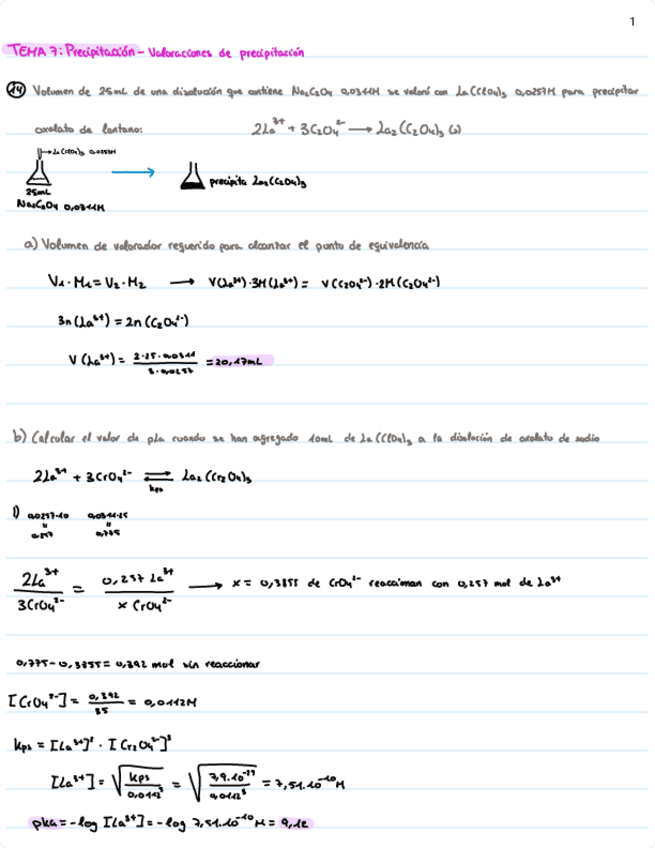 1
TEMA 7: Precipitación - Valoraciones de precipitación
24 Volumen de 25mL de una disolución que contiene Na₂C₂O₄ 0,0311M se valoró con La(ClO₄)₃ 0,0257M para precipitar
oxalato de lantano: 2La³⁺ + 3C₂O₄²⁻ → La₂(C₂O₄)₃ (s)
La(ClO₄)₃ 0.0257M
precipita La₂(C₂O₄)₃
25mL
Na₂C₂O₄ 0,0311M
a) Volumen de valorador requerido para alcanzar el punto de equivalencia
V₁·M₁ = V₂·M₂ → V(La³⁺)·3M(La³⁺) = V(C₂O₄²⁻)·2M(C₂O₄²⁻)
3n(La³⁺) = 2n(C₂O₄²⁻)
V(La³⁺) = 2·25·0,0311 / 3·0,0257 = 20,17mL
b) Calcular el valor de pLa cuando se han agregado 10mL de La(ClO₄)₃ a la disolución de oxalato de sodio
2La³⁺ + 3CrO₄²⁻ ⇌ La₂(Cr₂O₄)₃
kps
I) 0,0257·10 0,0311·25
= =
0,257 0,775
2La³⁺ / 3CrO₄²⁻ = 0,257 La³⁺ / x CrO₄²⁻ → x = 0,3855 de CrO₄²⁻ reaccionan con 0,257 mol de La³⁺
0,775 - 0,3855 = 0,392 mol sin reaccionar
[CrO₄²⁻] = 0,392 / 35 = 0,0112M
kps = [La³⁺]² · [Cr₂O₄²⁻]³
[La³⁺] = √(kps / 0,0112³) = √(7,9·10⁻¹⁷ / 0,0112³) = 7,51·10⁻¹⁰ M
pka = -log [La³⁺] = -log 7,51·10⁻¹⁰ M = 9,12